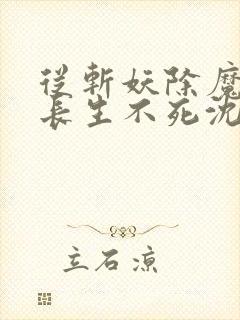 從斬妖除魔
長生不死沈
立石涼